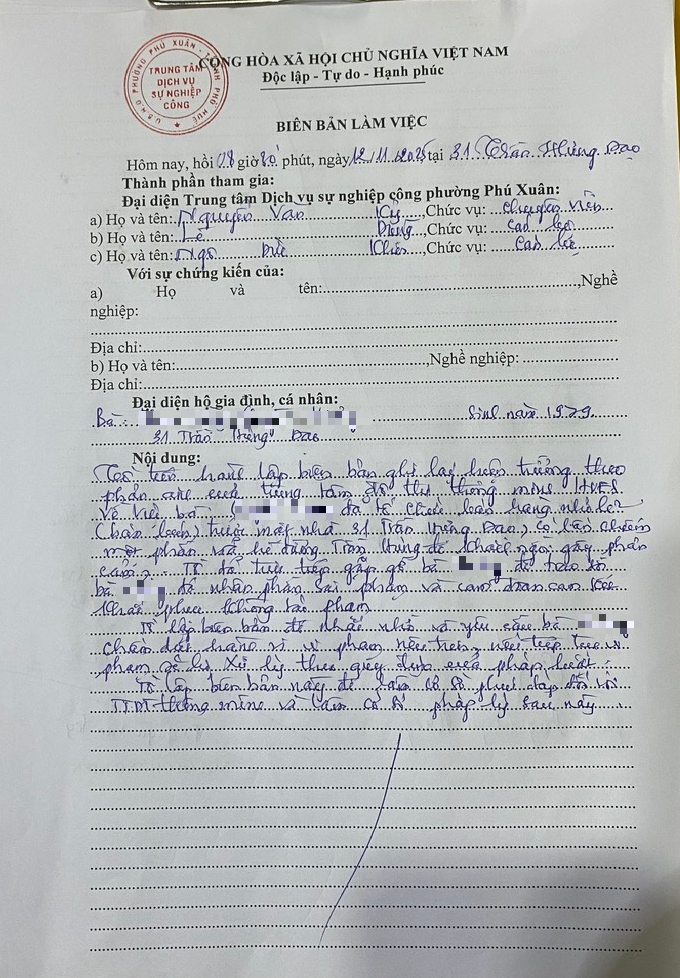 U.B.N.D PHƯỜNG PHÚ XUÂN - THÀNH PHỐ HUẾ
TRUNG TÂM
DỊCH VỤ
SỰ NGHIỆP
CÔNG
CỘNG HÒA XÃ HỘI CHỦ NGHĨA VIỆT NAM
Độc lập - Tự do - Hạnh phúc
BIÊN BẢN LÀM VIỆC
Hôm nay, hồi 08 giờ phút, ngày 12/11/2025 tại 31 Trần Hưng Đạo
Thành phần tham gia:
Đại diện Trung tâm Dịch vụ sự nghiệp công phường Phú Xuân:
a) Họ và tên: Nguyễn Văn Kỳ, Chức vụ: chuyên viên
b) Họ và tên: Lê Dũng, Chức vụ: Cán bộ
c) Họ và tên: Ngô Đức, Chức vụ: Cán bộ
Với sự chứng kiến của:
a) Họ và tên:, Nghề
nghiệp:
Địa chỉ:
b) Họ và tên:, Nghề nghiệp:
Địa chỉ:
Đại diện hộ gia đình, cá nhân:
Bà: Sinh năm 1979.
31 Trần Hưng Đạo
Nội dung:
Tổ tiến hành lập biên bản ghi lại hiện trường theo
phản ánh của trung tâm đô thị thông minh HUES
về việc bà đã tổ chức bán hàng
trước mặt nhà 31 Trần Hưng Đạo, có lấn chiếm
một phần vỉa hè đường Trần Hưng để khách ngồi gây phản
cảm. Tổ đã trực tiếp gặp gỡ bà để
bà đã nhận phần sai phạm và cam đoan cam kết
khắc phục không tái phạm
Tổ lập biên bản để nhắc nhở và yêu cầu bà
chấm dứt hành vi vi phạm nêu trên, nếu tiếp tục vi
phạm sẽ bị xử lý theo quy định của pháp luật.
Tổ lập biên bản này để làm cơ sở phúc đáp đối với
TTĐT thông minh và làm cơ sở pháp lý sau này